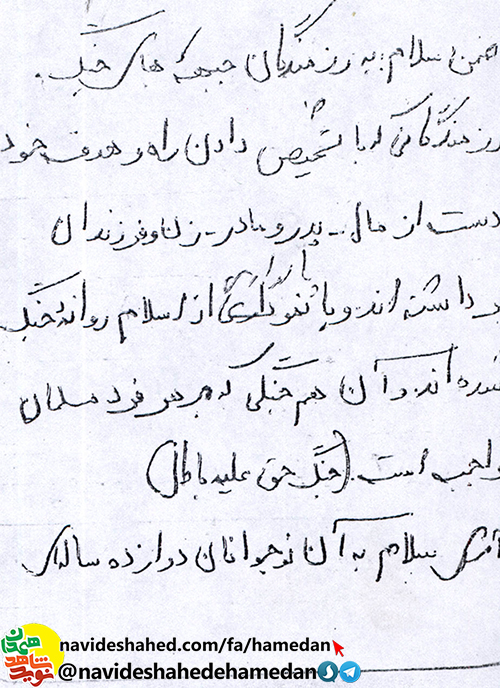 ضمن سلام به رزمندگان جبهه های جنگ.
رزمندگانی که با تشخیص دادن راه و هدف خود
دست از مال - پدر و مادر - زن و فرزندان
پاسداری
برداشته اند و با از اسلام روانهٔ جنگ
شده اند و آن هم جنگی که بر هر فرد مسلمان
واجب است. (جنگ حق علیه باطل)
سلام به آن نوجوانان دوازده ساله‌ی
navideshahed.com/fa/hamedan
@navideshahedehamedan
نوید شاهد
همدان